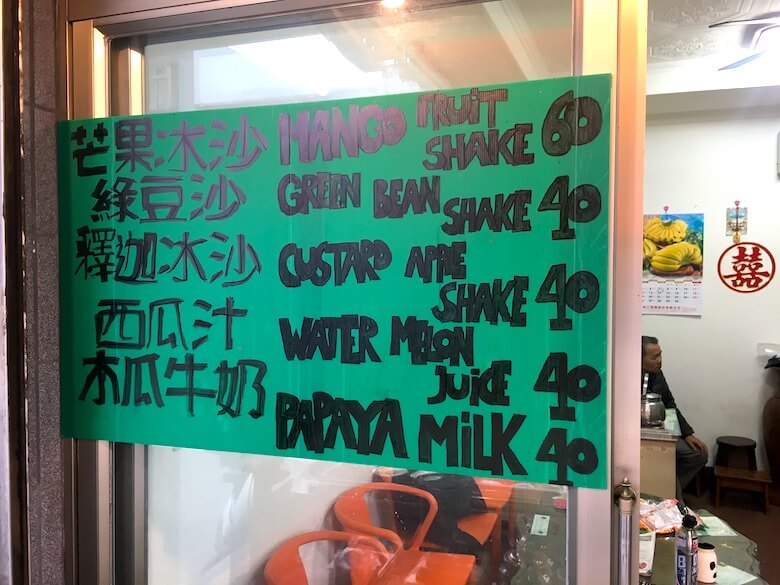 芒果冰沙 MANGO FRUIT SHAKE 60
綠豆沙 GREEN BEAN SHAKE 40
釋迦冰沙 CUSTARD APPLE SHAKE 40
西瓜汁 WATER MELON JUICE 40
木瓜牛奶 PAPAYA MiLK 40
囍